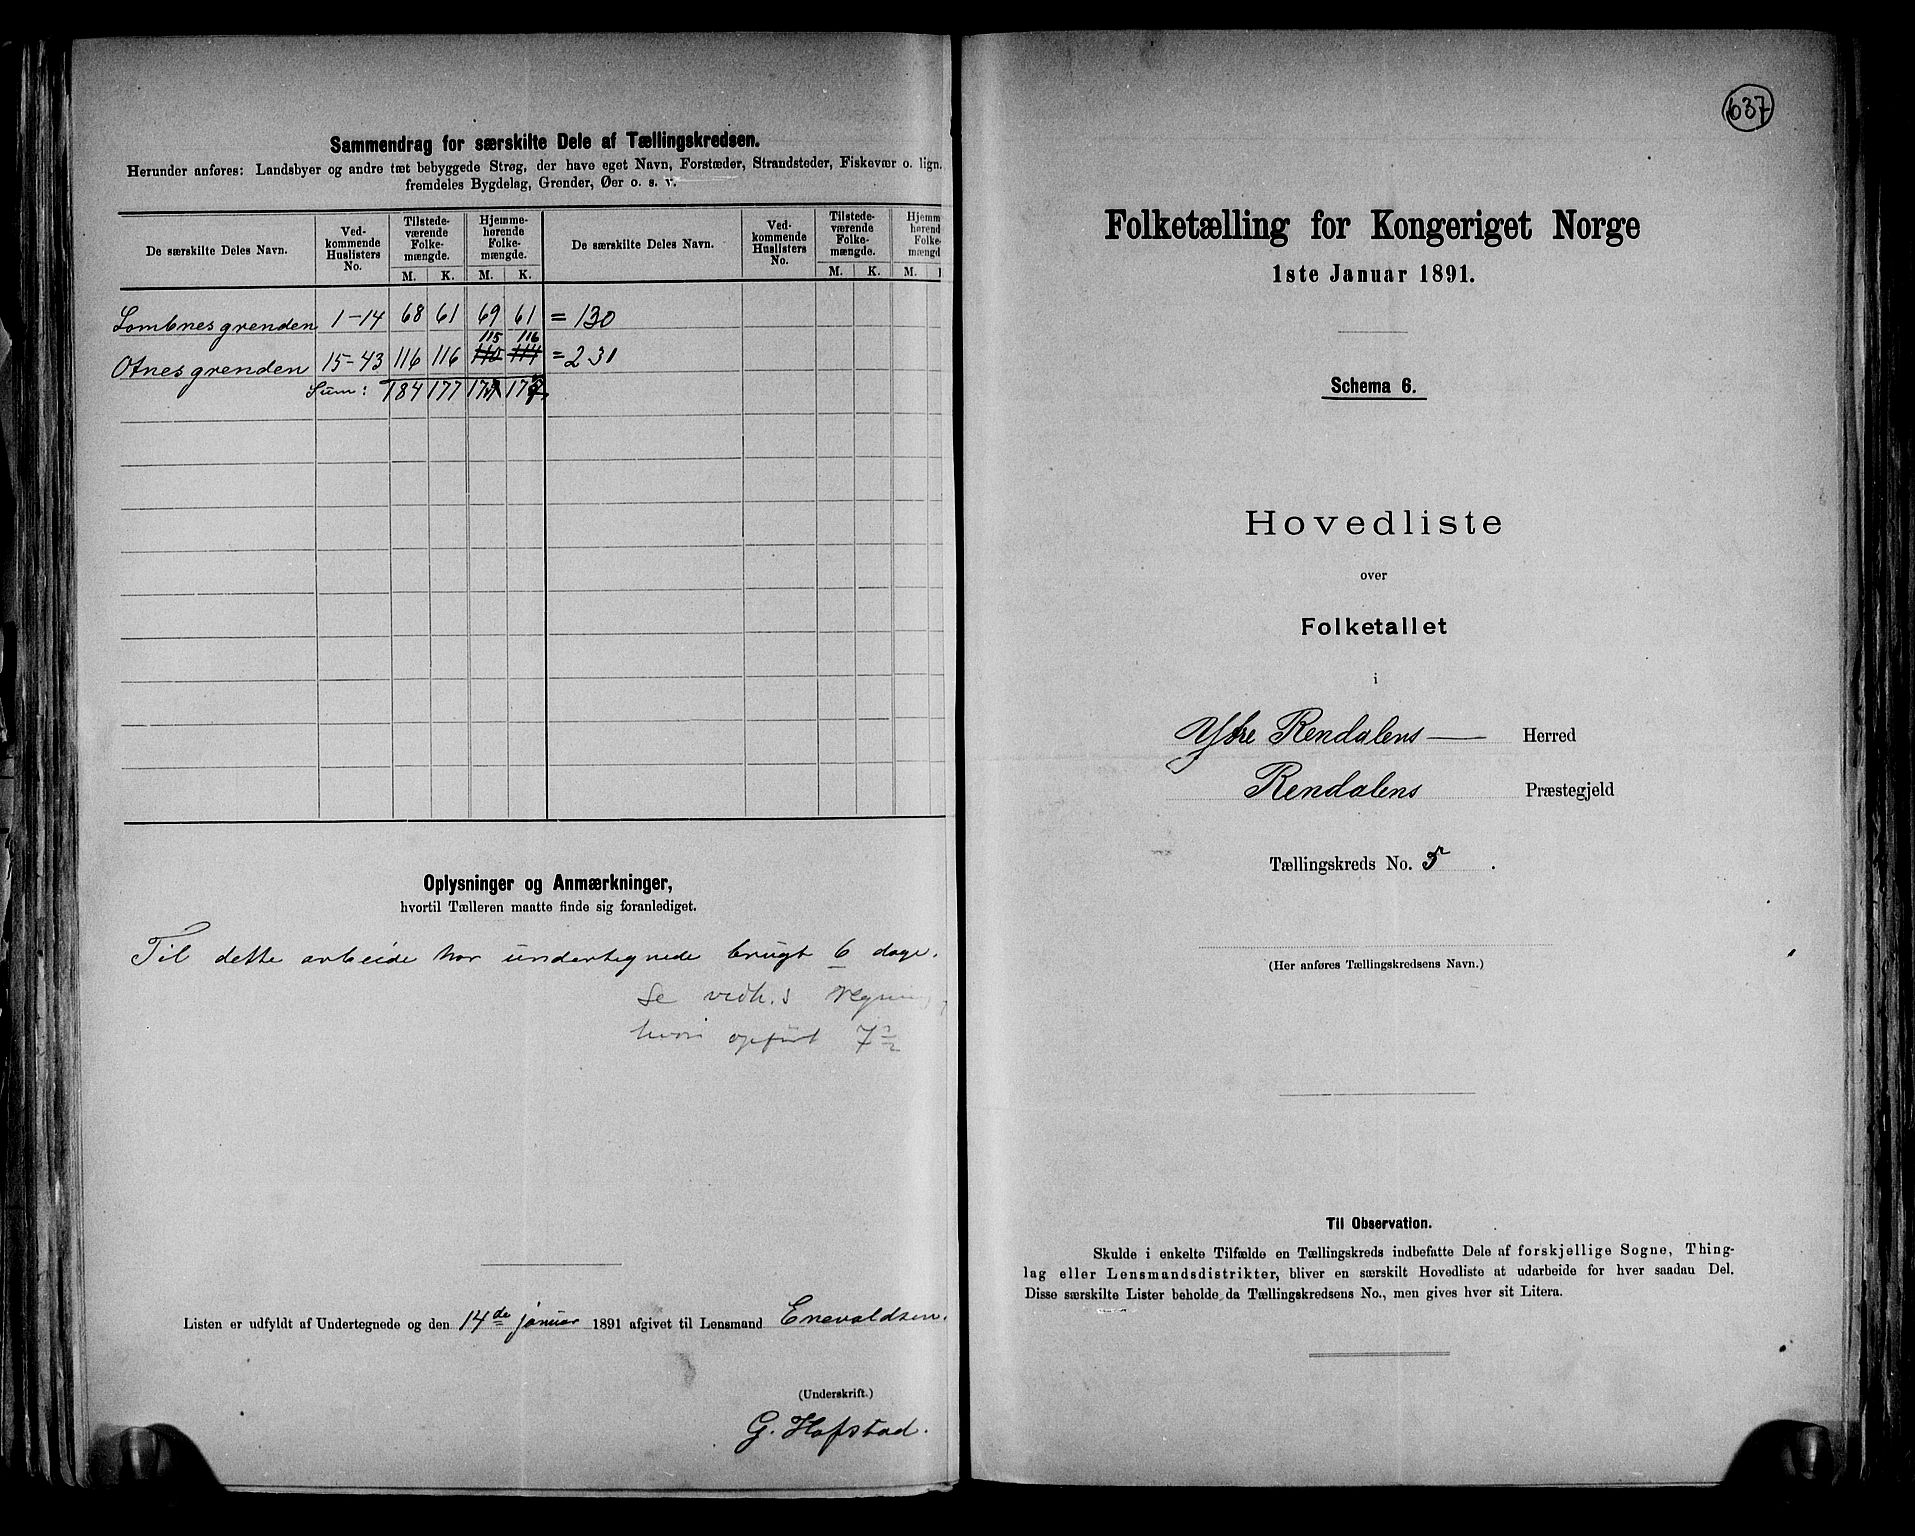 Sammendrag for særskilte Dele af Tællingskredsen.
Herunder anføres: Landsbyer og andre tæt bebyggede Strøg, der have eget Navn, Forstæder, Strandsteder, Fiskevær o. lign.
fremdeles Bygdelag, Grender, Øer o. s. v.
De særskilte Deles Navn.
Ved-
kommende
Huslisters
No.
Tilstede-
værende
Folke-
mængde.
M. K.
Hjemme-
hørende
Folke-
mængde.
M. K.
De særskilte Deles Navn.
Ved-
kommende
Huslisters
No.
Tilstede-
værende
Folke-
mængde.
M. K.
Hjemm
hørend
Folke
mængd
M.
Lombnesgrenden 1-14 68 61 69 61 = 130
115 116
Otnesgrenden 15-43 116 116 = 231
Sum: 184 177
Oplysninger og Anmærkninger,
hvortil Tælleren maatte finde sig foranlediget.
Til dette arbeide har undertegnede brugt 6 dage.
Se vedh.s
opført 7
Listen er udfyldt af Undertegnede og den 14de januar 1891 afgivet til Lensmand Enevaldsen.
(Underskrift.)
G. Hofstad.
637
Folketælling for Kongeriget Norge
1ste Januar 1891.
Schema 6.
Hovedliste
over
Folketallet
i
Ytre Rendalens Herred
Rendalens Præstegjeld
Tællingskreds No. 5.
(Her anføres Tællingskredsens Navn.)
Til Observation.
Skulde i enkelte Tilfælde en Tællingskreds indbefatte Dele af forskjellige Sogne, Thing-
lag eller Lensmandsdistrikter, bliver en særskilt Hovedliste at udarbeide for hver saadan Del.
Disse særskilte Lister beholde da Tællingskredsens No., men gives hver sit Litera.